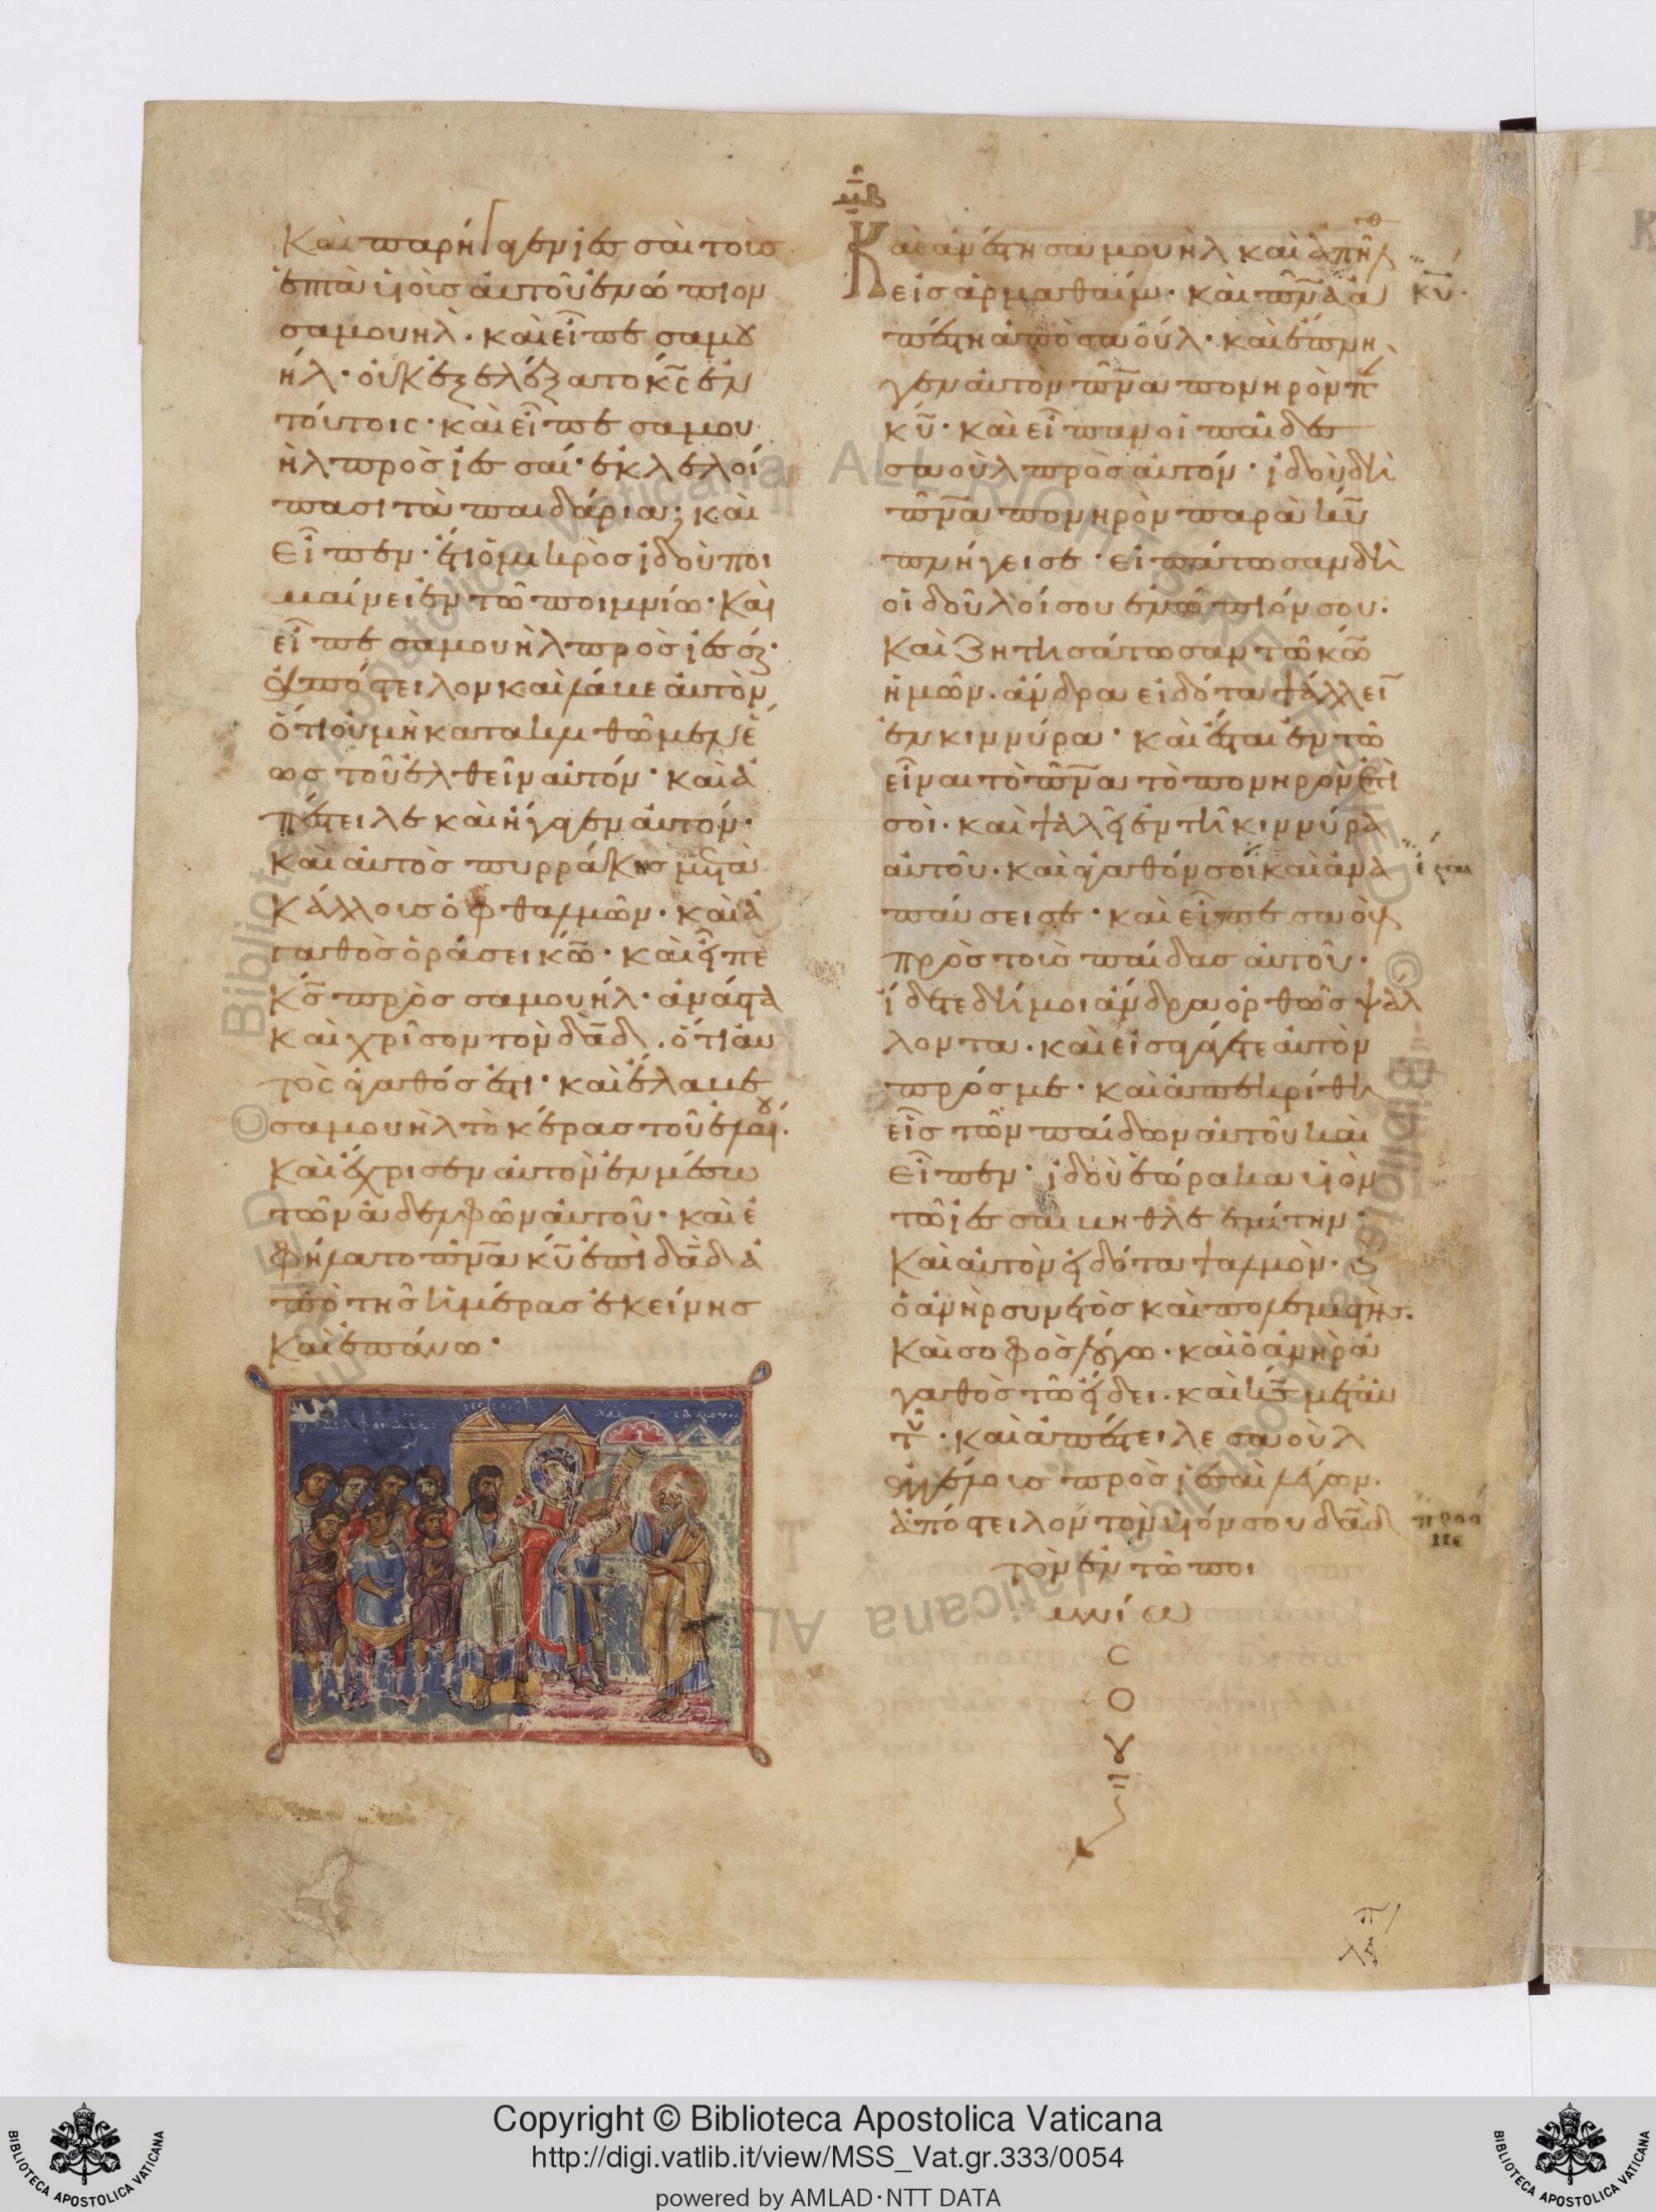 Καὶ παρήγαγεν ἰεσσαὶ τοὺς
ἑπτὰ υἱοὺς αὐτοῦ ἐνώπιον
σαμουηλ· καὶ εἶπε σαμου
ήλ· οὐκ ἐξελέξατο κ̅ς̅ ἐν
τούτοις· καὶ εἶπε σαμου
ὴλ πρὸς ἰεσσαί· ἐκλελοί
πασι τὰ παιδάρια; καὶ
εἶπεν· ἔτι ὁ μικρὸς ἰδοὺ ποι
μαίνει ἐν τῶ ποιμνίω· Καὶ
εἶπε σαμουὴλ πρὸς ἰεσσαί·
ἀπόστειλον καὶ λάβε αὐτὸν
ὅτι οὐ μὴ κατακλιθῶμεν ἕ
ως τοῦ ἐλθεῖν αὐτόν· καὶ ἀ
πέστειλε καὶ ἤγαγεν αὐτόν·
καὶ αὐτὸς πυρράκης μετὰ
κάλλους ὀφθαλμῶν· καὶ ἀ
γαθὸς ὁράσει κ̅ω̅· καὶ εἶπε
κ̅ς̅ πρὸς σαμουήλ· ἀνάστα
καὶ χρῖσον τὸν δ̅α̅δ̅· ὅτι αὐ
τὸς ἀγαθός ἐστι· καὶ ἔλαβε
σαμουὴλ τὸ κέρας τοῦ ἐλαίου·
Καὶ ἔχρισεν αὐτὸν ἐν μέσω
τῶν ἀδελφῶν αὐτοῦ· καὶ ἐ
φήλατο π̅ν̅α̅ κ̅υ̅ ἐπὶ δ̅α̅δ̅ ἀ
πὸ τῆς ἡμέρας ἐκείνης
Καὶ ἐπάνω·
Καὶ ἀνέστη σαμουὴλ καὶ ἀπῆλθ
εἰς ἀρμαθαίμ· καὶ π̅ν̅α̅ ἀ
κ̅υ̅·
πέστη ἀπὸ σαούλ· καὶ ἔπνι
γεν αὐτὸν π̅ν̅α̅ πονηρὸν π
κ̅υ̅· καὶ εἶπαν οἱ παῖδες
σαοὺλ πρὸς αὐτόν· ἰδοὺ δὴ
π̅ν̅α̅ πονηρὸν παρὰ κ̅υ̅
πνήγει σε· εἰπάτωσαν δὴ
οἱ δοῦλοί σου ἐνώπιόν σου·
Καὶ ζητησάτωσαν τῶ κ̅ω̅
ἡμῶν· ἄνδρα εἰδότα ψάλλειν
ἐν κιννύρα· καὶ ἔσται ἐν τῶ
εἶναι τὸ π̅ν̅α̅ τὸ πονηρὸν ἐπὶ
σοὶ· καὶ ψαλεῖ ἐν τῆ κιννύρα
αὐτοῦ· καὶ ἀγαθόν σοι καὶ ἀνα
ἔσται
παύσει σε· καὶ εἶπε σαοὺλ
πρὸς τοὺς παῖδας αὐτοῦ·
ἴδετε δή μοι ἄνδρα ὀρθῶς ψάλ
λοντα· καὶ εἰσαγάγετε αὐτὸν
πρός με· καὶ ἀπεκρίθη
εἷς τῶν παίδων αὐτοῦ καὶ
εἶπεν· ἰδοὺ ἑώρακα υἱὸν
τῶ ἰεσσαι βηθλεεμίτην·
Καὶ αὐτὸν εἰδότα ψαλμὸν·
ὁ ἀνὴρ συνετὸς καὶ πολεμιστὴς·
Καὶ σοφὸς λόγω· καὶ ὁ ἀνὴρ ἀ
γαθὸς τῶ εἴδει· καὶ κ̅ς̅ μετ' αὐ
τοῦ· καὶ ἀπέστειλε σαοὺλ
ἀγγέλους πρὸς ἰεσσαὶ λέγων·
ἀπόστειλον τὸν υἱόν σου δ̅α̅δ̅
προσ
με
τὸν ἐν τῶ ποι
μνίω
σ
ο
υ
Copyright © Biblioteca Apostolica Vaticana
http://digi.vatlib.it/view/MSS_Vat.gr.333/0054
powered by AMLAD·NTT DATA